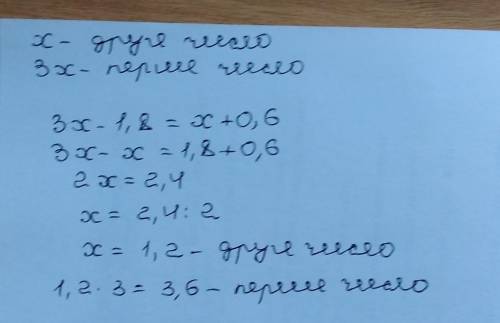 x - друге число
3x - перше число
3x - 1,8 = x + 0,6
3x - x = 1,8 + 0,6
2x = 2,4
x = 2,4 : 2
x = 1,2 - друге число
1,2 · 3 = 3,6 - перше число